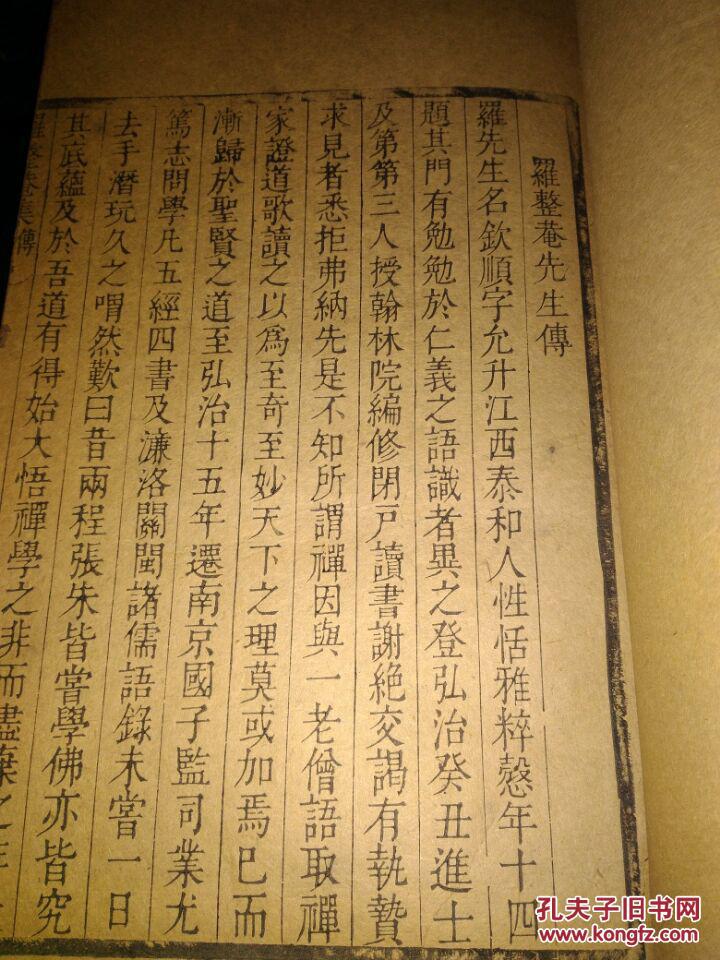 羅整菴先生傳
羅先生名欽順字允升江西泰和人性恬雅粹慤年十四
題其門有勉勉於仁義之語識者異之登弘治癸丑進士
及第第三人授翰林院編修閉戸讀書謝絶交謁有執贄
求見者悉拒弗納先是不知所謂禪因與一老僧語取禪
家證道歌讀之以爲至奇至妙天下之理莫或加焉已而
漸歸於聖賢之道至弘治十五年遷南京國子監司業尤
篤志問學凡五經四書及濂洛關閩諸儒語錄未嘗一日
去手潛玩久之喟然歎曰昔兩程張朱皆嘗學佛亦皆究
其底蘊及於吾道有得始大悟禪學之非而盡棄之
羅整菴集 傳
孔夫子旧书网
www.kongfz.com